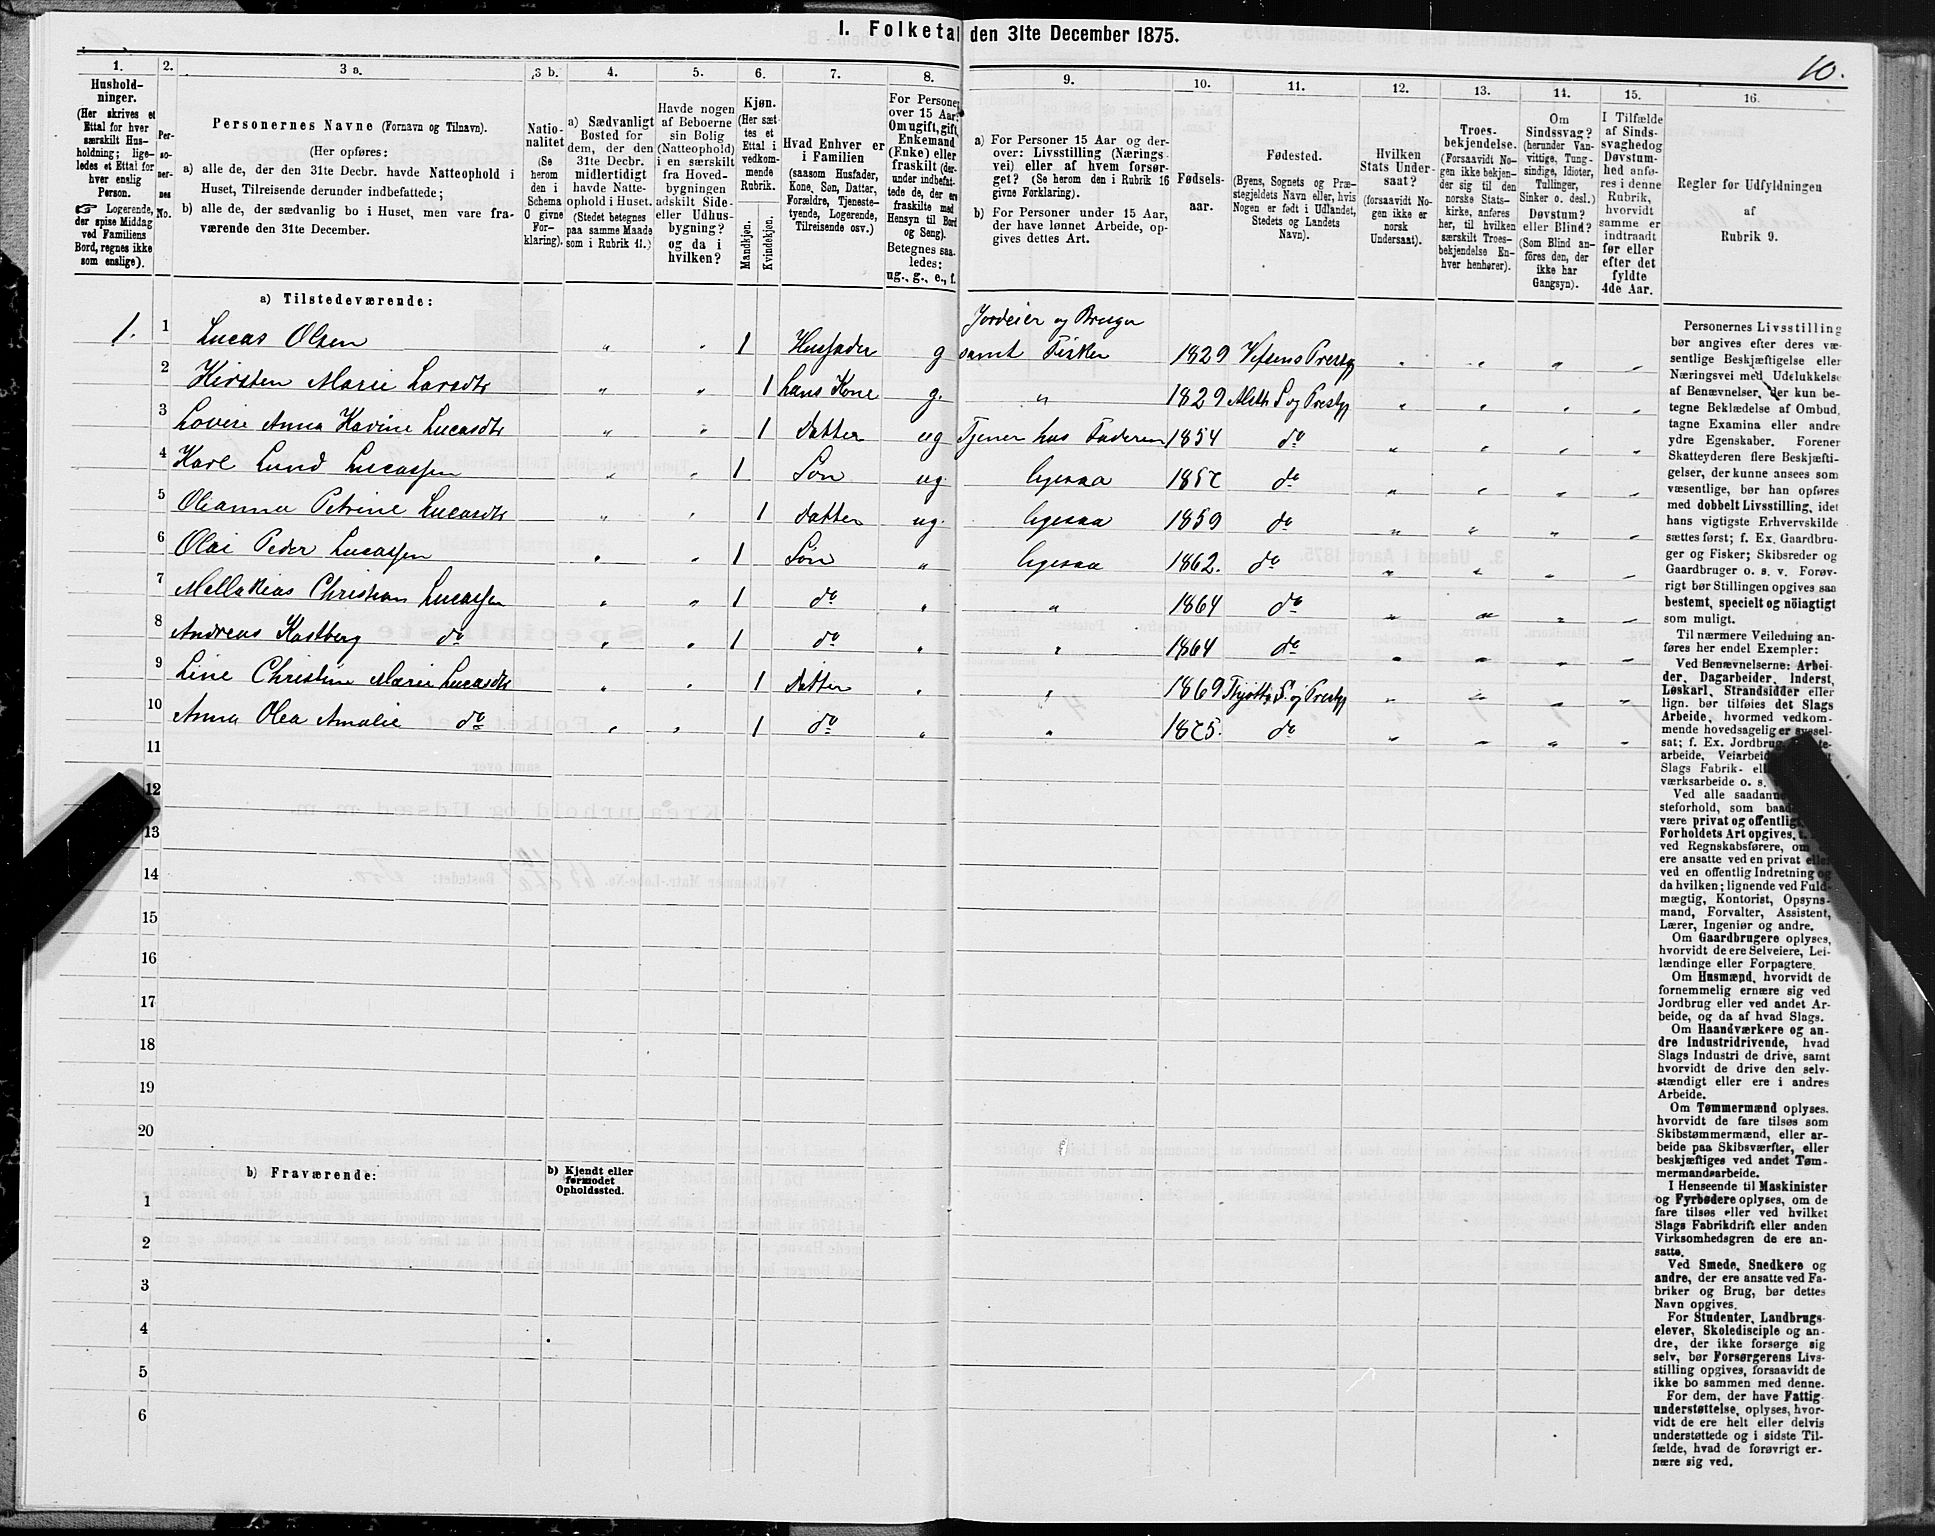 I. Folketal den 31te December 1875.
10.
1.
Hushold-
ninger.
(Her skrives et
Ettal for hver
særskilt Hus-
holdning; lige-
ledes et Ettal for
hver enslig
Person.
☞ Logerende,
der spise Middag
ved Familiens
Bord, regnes ikke
som enslige).
2.
Per-
so-
ner-
nes
No.
3 a.
Personernes Navne (Fornavn og Tilnavn).
(Her opføres:
a) alle de, der den 31te Decbr. havde Natteophold i
Huset, Tilreisende derunder indbefattede;
b) alle de, der sædvanlig bo i Huset, men vare fra-
værende den 31te December.
3 b.
Natio-
nalitet
(Se
herom
den i
Schema
O givne
For-
klaring).
4.
a) Sædvanligt
Bosted for
dem, der den
31te Decbr.
midlertidigt
havde Natte-
ophold i Huset.
(Stedet betegnes
paa samme Maade
som i Rubrik 11.)
5.
Havde nogen
af Beboerne
sin Bolig
(Natteophold)
i en særskilt
fra Hoved-
bygningen
adskilt Side-
eller Udhus-
bygning?
og da i
hvilken?
6.
Kjøn.
(Her sæt-
tes et
Ettal i
vedkom-
mende
Rubrik.
Mandkjøn.
Kvindekjøn.
7.
Hvad Enhver er
i Familien
(saasom Husfader,
Kone, Søn, Datter,
Forældre, Tjeneste-
tyende, Logerende,
Tilreisende osv.)
8.
For Personer
over 15 Aar:
Om ugift, gift,
Enkemand
(Enke) eller
fraskilt (der-
under indbefat-
tede de, der ere
fraskilte med
Hensyn til Bord
og Seng).
Betegnes saa-
ledes:
ug., g., e., f.
9.
a) For Personer 15 Aar og der-
over: Livsstilling (Nærings-
vei) eller af hvem forsør-
get? (Se herom den i Rubrik 16
givne Forklaring).
b) For Personer under 15 Aar,
der have lønnet Arbeide, op-
gives dettes Art.
10.
Fødsels-
aar.
11.
Fødested.
(Byens, Sognets og Præ-
stegjeldets Navn eller, hvis
Nogen er født i Udlandet,
Stedets og Landets
Navn).
12.
Hvilken
Stats Under-
saat?
(forsaavidt No-
gen ikke er
norsk
Undersaat).
13.
Troes-
bekjendelse.
(Forsaavidt No-
gen ikke bekjen-
der sig til den
norske Stats-
kirke, anføres
her, til hvilken
særskilt Troes-
bekjendelse En-
hver henhører).
14.
Om
Sindssvag?
(herunder Van-
vittige, Tung-
sindige, Idioter,
Tullinger,
Sinker o. desl.)
Døvstum?
eller Blind?
(Som Blind an-
føres den, der
ikke har
Gangsyn).
15.
I Tilfælde
af Sinds-
svaghed og
Døvstum-
hed anfø-
res i denne
Rubrik,
hvorvidt
samme er
indtraadt
før eller
efter det
fyldte
4de Aar.
16.
Regler for Udfyldningen
af
Rubrik 9.
a) Tilstedeværende:
1. 1 Lucas Olsen „ „ 1 Husfader g Jordeier og Bruger samt Fisker 1829 Vefsens Prestgj „ „ „ „
2 Kirsten Marie Larsdtr „ „ 1 hans Kone g. „ 1829 Alsth S og Prestgj „ „ „ „
3 Lovise Anna Havine Lucasdtr „ „ 1 Datter ug Tjener hos Faderen 1854 do „ „ „ „
4 Karl Lund Lucassen „ „ 1 Søn ug. ligesaa 1857 do „ „ „ „
5 Olianna Petrine Lucasdtr „ „ 1 Datter ug. ligesaa 1859 do „ „ „ „
6 Olai Peder Lucassen „ „ 1 Søn „ ligesaa 1862. do „ „ „ „
7 Mallakias Christian Lucassen „ „ 1 do „ „ 1864 do „ „ „ „
8 Andreas Kastberg do „ „ 1 do „ „ 1864 do „ „ „ „
9 Line Christine Marie Lucasdtr „ „ 1 Datter „ „ 1869 Thjøttø S. og Prestgj „ „ „ „
10 Anna Olea Amalie do „ „ 1 do „ „ 1875. do „ „ „ „
11
12
13
14
15
16
17
18
19
20
b) Fraværende:
b) Kjendt eller
formodet
Opholdssted.
1
2
3
4
5
6
Personernes Livsstilling
bør angives efter deres væ-
sentlige Beskjæftigelse eller
Næringsvei med Udelukkelse
af Benævnelser, der kun be-
tegne Beklædelse af Ombud,
tagne Examina eller andre
ydre Egenskaber. Forener
Skatteyderen flere Beskjæfti-
gelser, der kunne ansees som
væsentlige, bør han opføres
med dobbelt Livsstilling, idet
hans vigtigste Erhvervskilde
sættes først; f. Ex. Gaardbru-
ger og Fisker; Skibsreder og
Gaardbruger o. s. v. Forøv-
rigt bør Stillingen opgives saa
bestemt, specielt og nöiagtigt
som muligt.
Til nærmere Veiledning an-
føres her endel Exempler:
Ved Benævnelserne: Arbei-
der, Dagarbeider, Inderst,
Løskarl, Strandsidder eller
lign. bør tilføies det Slags
Arbeide, hvormed vedkom-
mende hovedsagelig er syssel-
sat; f. Ex. Jordbrug,
arbeide, Veiarbeide
Slags Fabrik-
værksarbeide o. s.
Ved alle saadanne
steforhold, som
være privat og offentligt
Forholdets Art opgives,
ved Regnskabsførere, om
ere ansatte ved en privat eller
ved en offentlig Indretning og
da hvilken; lignende ved Fuld-
mægtig, Kontorist, Opsyns-
mand, Forvalter, Assistent,
Lærer, Ingeniør og andre.
Om Gaardbrugere oplyses,
hvorvidt de ere Selveiere, Lei-
lændinge eller Forpagtere.
Om Husmænd, hvorvidt de
fornemmelig ernære sig ved
Jordbrug eller ved andet Ar-
beide, og da af hvad Slags.
Om Haandværkere og an-
dre Industridrivende, hvad
Slags Industri de drive, samt
hvorvidt de drive den selv-
stændigt eller ere i andres
Arbeide.
Om Tømmermænd oplyses,
hvorvidt de fare tilsøs som
Skibstømmermænd, eller ar-
beide paa Skibsværfter, eller
beskjæftiges ved andet Tøm-
mermandsarbeide.
I Henseende til Maskinister
og Fyrbødere oplyses, om de
fare tilsøs eller ved hvilket
Slags Fabrikdrift eller anden
Virksomhedsgren de ere an-
satte.
Ved Smede, Snedkere og
andre, der ere ansatte ved Fa-
briker og Brug, bør dettes
Navn opgives.
For Studenter, Landbrugs-
elever, Skoledisciple og an-
dre, der ikke forsørge sig
selv, bør Forsørgerens Livs-
stilling opgives, forsaavidt de
ikke bo sammen med denne.
For dem, der have Fattig-
understøttelse, oplyses, hvor-
vidt de ere helt eller delvis
understøttede og i sidste Til-
fælde, hvad de forøvrigt er-
nære sig ved.